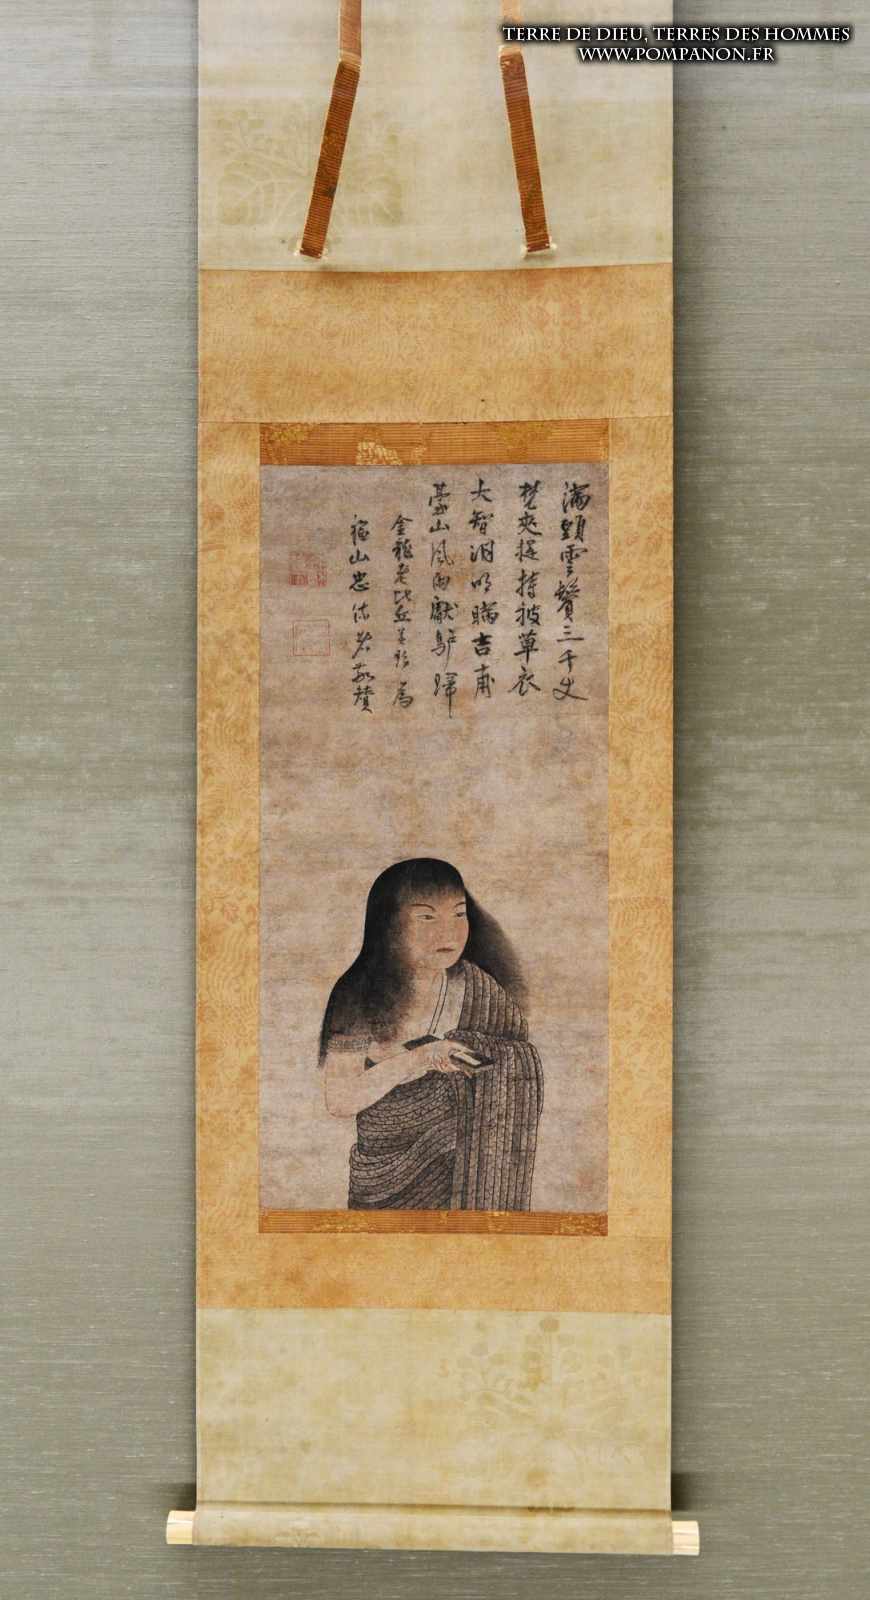 TERRE DE DIEU, TERRES DES HOMMES
WWW.POMPANON.FR
滿頭雲鬢三千丈
梵夾提持被草衣
大智洞明瞞吉甫
臺山風雨馱驢歸
金 老比丘 為
福山忠 敬贊